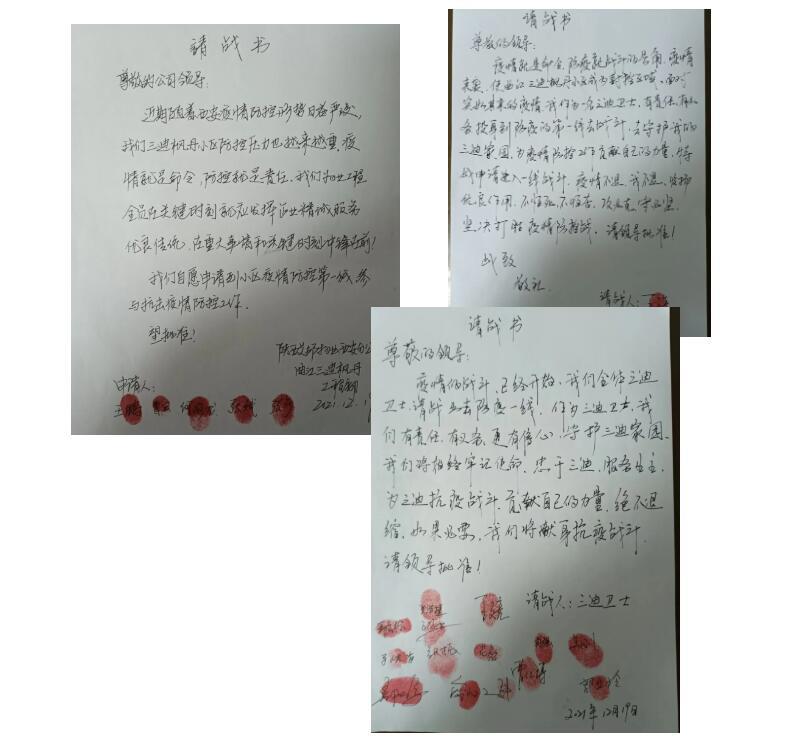 请战书
尊敬的公司领导:
近期随着西安疫情防控形势日益严峻,
我们三迪枫丹小区防控压力也越来越重,疫
情就是命令,防控就是责任。我们物业工程
全员在关键时刻就应发挥
优良传统,在重大事情和关键时刻冲锋在前!
我们自愿申请到小区疫情防控第一线,参
与抗击疫情防控工作。
望批准!
曲江三迪枫丹
工程部
申请人:
2021.12.1
请战书
尊敬的领导:
疫情就是命令,防疫就是战斗的号角,疫情
来袭,使曲江三迪枫丹小区成为封控区域,面对
突如其来的疫情,我作为一名三迪卫士,有责任,有义
务投身到防疫的第一线去战斗,去守护我的
三迪家园,为疫情防控工作贡献自己的力量,特
战申请进入一线战斗,疫情不退,我不退,发挥
优良作用,不怕死,不怕苦,
坚决打胜疫情防控战,请领导批准!
战致
敬礼
请战人:
请战书
尊敬的领导:
疫情的战斗,已经开始,我们全体三迪
卫士,请战出去防疫一线,作为三迪卫士,我
们有责任,有义务,更有信心,守护三迪家园,
我们将始终牢记使命,忠于三迪,服务业主,
为三迪抗疫战斗,贡献自己的力量,绝不退
缩,如果必要,我们将献身抗疫战斗,
请领导批准!
请战人:三迪卫士
2021年12月19日